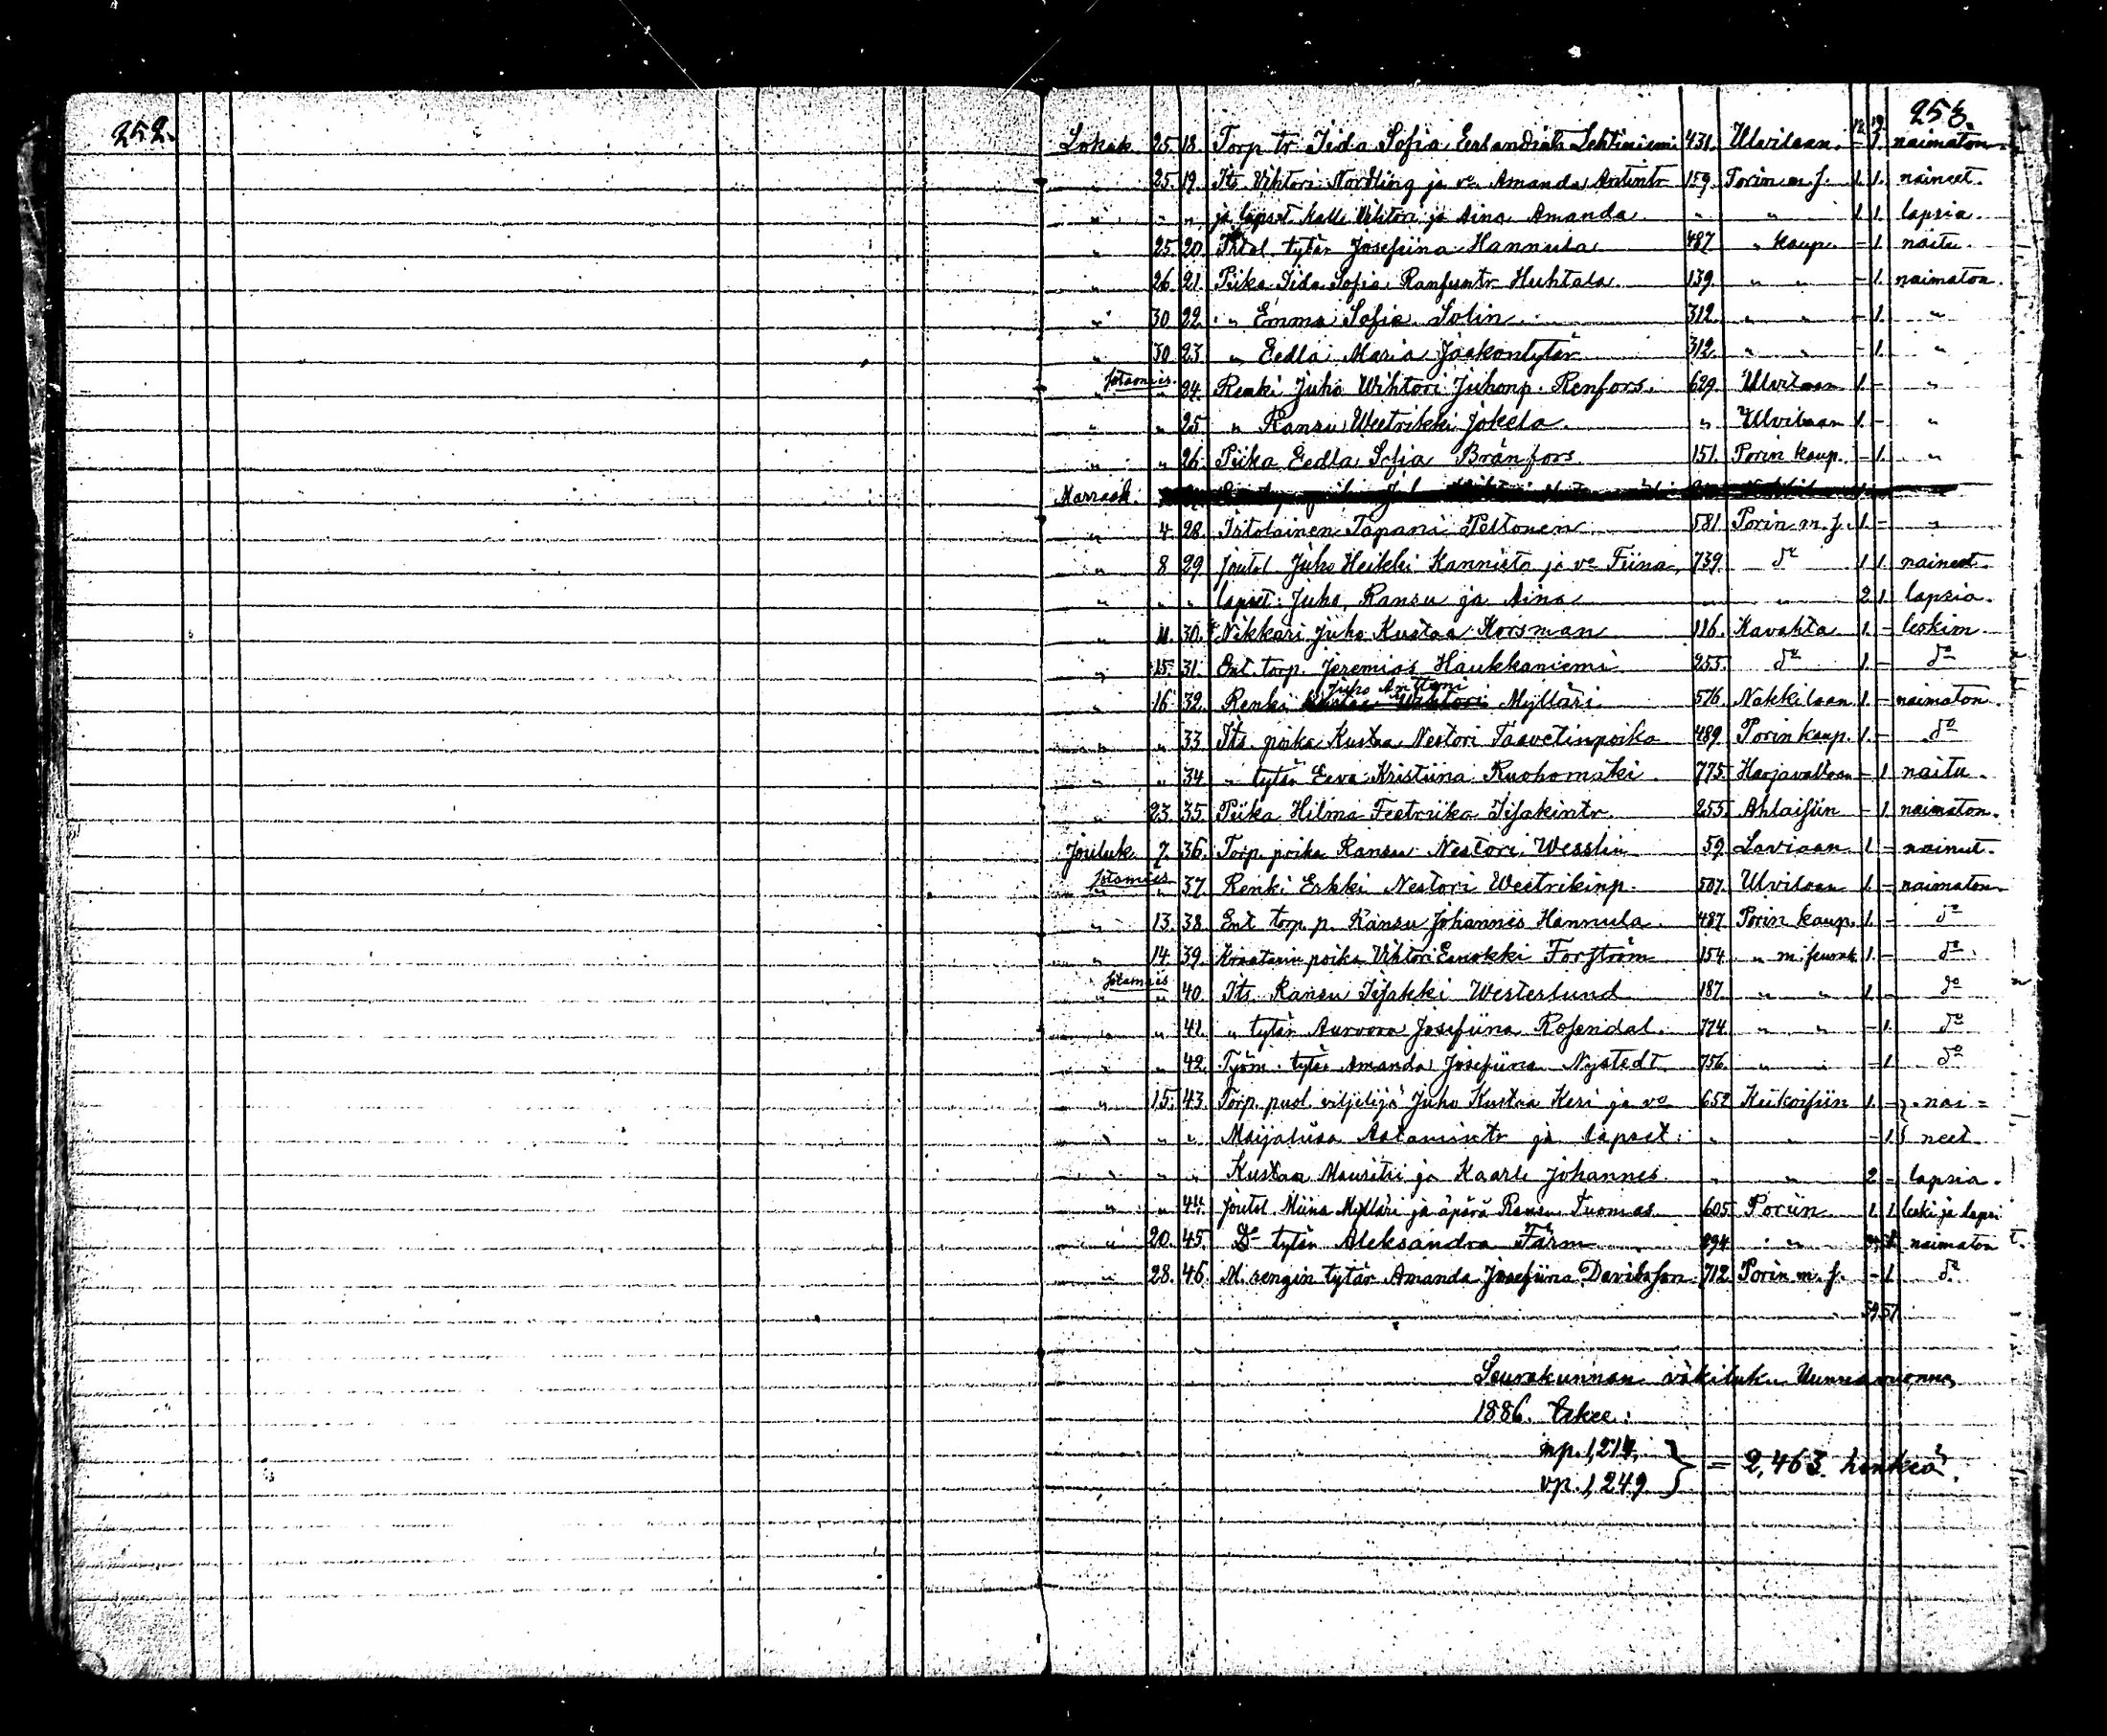 252.
253.
Lokak. 25. 18. Torp. tr. Iida Sofia Eerlandintr Lehtiniemi 431. Ulvilaan. - 1. naimaton.
" 25. 19. Its. Vihtori Nordling ja vo Amanda Antintr 159. Porin m. s. 1. 1. naineet.
" " " ja lapset Kalle Vihtori ja Aina Amanda " " 1. 1. lapsia.
" 25. 20. tytär Josefiina Hannula 487. " kaup. - 1. naitu.
" 26. 21. Piika Iida Sofia Ransuntr Huhtala 139. " " - 1. naimaton.
" 30. 22. " Emma Sofia Solin 312. " " - 1. "
" 30. 23. " Eedla Maria Jaakontytär 312. " " - 1. "
" " 24. Renki Juho Wihtori Juhonp. Renfors. 629. Ulvilaan 1. - "
" " 25. " Ransu Weetrikki Jokela " Ulvilaan 1. - "
" " 26. Piika Eedla Sofia Bränfors 151. Porin kaup. - 1. "
Marrask.
" 4. 28. Itstolainen Tapani Peltonen 581. Porin m. s. 1. - "
" 8. 29. Joutol. Juho Heikki Kannisto ja vo Fiina, 739. do 1. 1. naineet.
" " " lapset: Juho, Ransu ja Aina " " 2. 1. lapsia.
" 11. 30. Nikkari Juho Kustaa Korsman 116. Kavahta 1. - leskim.
" 15. 31. Ent. torp. Jeremias Haukkaniemi 255. do 1. - do
" 16. 32. Renki Juho Anttoni Mylläri 576. Nakkilaan 1. - naimaton.
" " 33. Its. poika Kustaa Nestori Taavetinpoika 489. Porin kaup. 1. - do
" " 34. " tytär Eeva Kristiina Ruohomäki 775. Harjavaltaan - 1. naitu.
" 23. 35. Piika Hilma Feetriika Iisakintr. 255. Ahlaisiin - 1. naimaton.
Jouluk. 7. 36. Torp. poika Ransu Nestori Wesslin 59. Laviaan 1. - nainut.
" " 37. Renki Erkki Nestori Weetrikinp. 507. Ulvilaan 1. - naimaton.
" 13. 38. Ent. torp. p. Ransu Johannes Hannula 487. Porin kaup. 1. - do
" 14. 39. Kraatarin poika Vihtori Eenokki Forsström 154. " m. seurak. 1. - do
" " 40. Its. Ransu Iisakki Westerlund 187. " " 1. - do
" " 41. " tytär Aurora Josefiina Rosendal. 774. " " - 1. do
" " 42. Työm. tytär Amanda Josefiina Nystedt 756. " " - 1. do
" 15. 43. Torp. puol. viljelijä Juho Kustaa Keri ja vo 652. Kiikoisiin 1. - } nai=
" " " Maijaliisa Aatamintr ja lapset: " " - 1. } neet.
" " " Kustaa Mauritsi ja Kaarle Johannes. " " 2. - lapsia.
" " 44. Joutol. Miina Mylläri ja äpärä Ransu Tuomas 605. Poriin 1. 1. leski ja lapsi
" 20. 45. Do tytär Aleksandra Färm 894. " naimaton
" 28. 46. M. rengin tytär Amanda Josefiina Davidsson 712. Porin m. s. - 1. do
Seurakunnan väkiluku Uunna vuonna
1886. tekee:
mp. 1,214,
vp. 1,249 } = 2,463 henkeä.